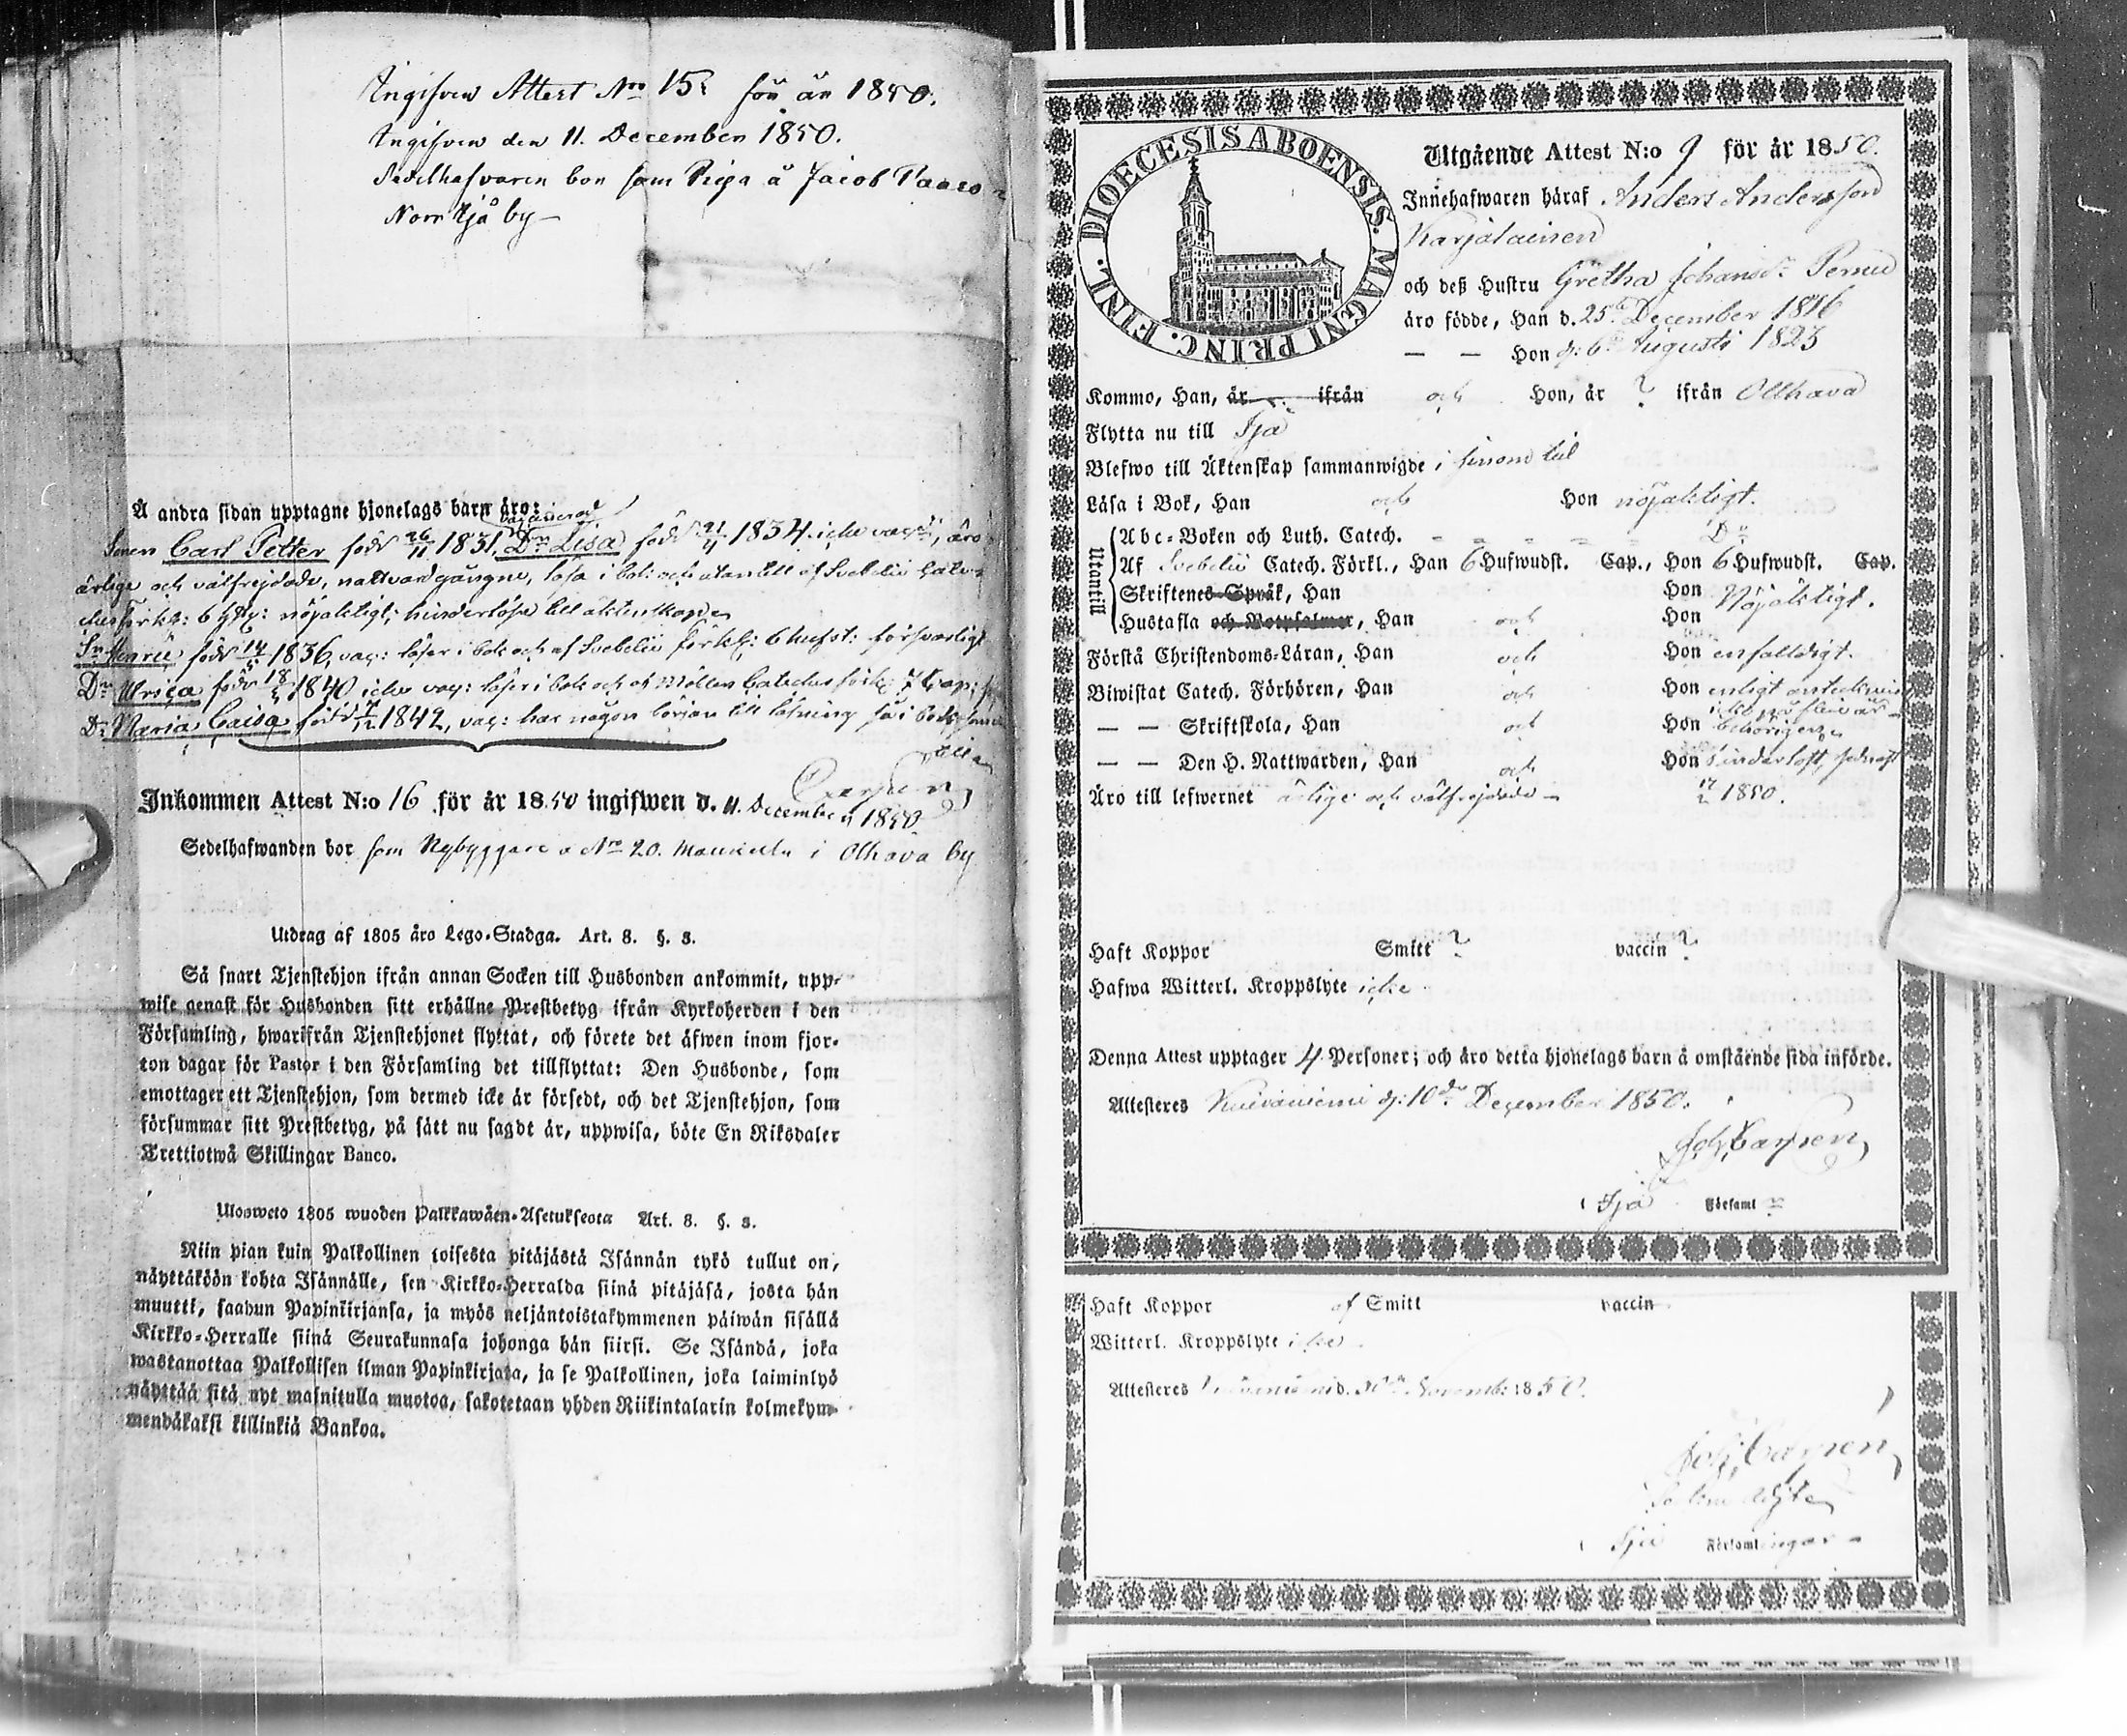 Ingifven Attest No 15 för år 1850.
Ingifven den 11. December 1850.
Sedelhafvaren bor som Piga å Jacob
Norr Ijå by
Å andra sidan upptagne hjonelags barn äro:
vaccinerad
Sonen Carl Petter född 26/11 1831, Dr Lisa född 21/4 1834. icke vacc:, äro
ärlige och välfrejdade, nattvardgångne, läsa i bok och utantill af Svebelii Cate-
ches förkl: 6 Hst: nöjaktigt; hinderlöse till äktenskap
Sn Henric född 14/5 1836, vac: läser i bok och af Svebelii förkl: 6 hufst: försvarligt
Dr Ulrica född 18/5 1840 icke vac: läser i bok och af Möllers Cateches förkl: 7 Cap:
Dr Maria Caisa född 1842, vac: har någon början till läsning så i bok som
utan
Caysén
Inkommen Attest N:o 16 för år 1850 ingifwen d. 11. December 1850
Sedelhafwanden bor som Nybyggare å No 20. i Olhava by
Utdrag af 1805 års Lego-Stadga. Art. 8. §. 8.
Så snart Tjenstehjon ifrån annan Socken till Husbonden ankommit, upp-
wise genast för Husbonden sitt erhållne Prestbetyg ifrån Kyrkoherden i den
Församling, hwarifrån Tjenstehjonet flyttat, och förete det äfwen inom fjor-
ton dagar för Pastor i den Församling det tillflyttat: Den Husbonde, som
emottager ett Tjenstehjon, som dermed icke är försedt, och det Tjenstehjon, som
försummar sitt Prestbetyg, på sätt nu sagdt är, uppwisa, böte En Riksdaler
Trettiotwå Skillingar Banco.
Ulosweto 1805 wuoden Palkkawäen-Asetuksesta Art. 8. §. 8.
Niin pian kuin Palkollinen toisesta pitäjästä Isännän tykö tullut on,
näyttäköön kohta Isännälle, sen Kirkko-Herralda siinä pitäjäsä, josta hän
muutti, saadun Papinkirjansa, ja myös neljäntoistakymmenen päiwän sisällä
Kirkko-Herralle siinä Seurakunnasa johonga hän siirsi. Se Isändä, joka
wastanottaa Palkollisen ilman Papinkirjata, ja se Palkollinen, joka laiminlyö
näyttää sitä nyt mainitulla muotoa, sakotetaan yhden Riikintalarin kolmekym-
mendäkaksi killinkiä Bankoa.
DIOECESIS ABOENSIS. MAGNI PRINC. FINL.
Utgående Attest N:o 9 för år 1850.
Innehafwaren häraf Anders Andersson
Karjalainen
och deß Hustru Gretha Johansdr Pernu
äro födde, Han d. 25te December 1816
— — Hon d: 6te Augusti 1823
Kommo, Han, är ifrån och Hon, år ? ifrån Olhava
Flytta nu till Ijå
Blefwo till Äktenskap sammanwigde i sinom tid
Läsa i Bok, Han och Hon nöjaktigt.
Utantill
Abc-Boken och Luth. Catech. Do
Af Svebelii Catech. Förkl., Han 6 Hufwudst. Cap., Hon 6 Hufwudst. Cap.
Skriftenes Språk, Han Hon Nöjaktigt.
Hustafla och Botpsalmer, Han och Hon
Förstå Christendoms-Läran, Han och Hon enfaldigt.
Biwistat Catech. Förhören, Han och Hon enligt anteckning
— — Skriftskola, Han och Hon behörigen
— — Den H. Nattwarden, Han och Hon
Äro till lefwernet ärlige och välfrejdade 1850.
Haft Koppor Smitt ? vaccin ?
Hafwa Witterl. Kroppslyte icke
Denna Attest upptager 4 Personer; och äro detta hjonelags barn å omstående sida införde.
Attesteres Kuivaniemi d: 10de December 1850.
Joh. Caysén
i Ijå Församl
Haft Koppor af Smitt vaccin
Witterl. Kroppslyte icke
Attesteres Kuivaniemi d. Novemb: 1850.
Joh. Caysén
i Ijå Församlingar